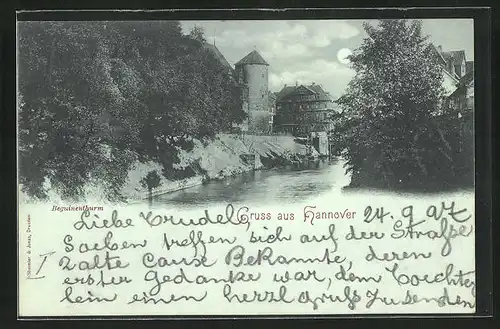 Beguinenthurm
Gruss aus Hannover
24. 9. 97
Liebe Trudel,
Soeben treffen sich auf der Straße
2 alte Bekannte, deren
erster Gedanke war, dem
lein einen herzl Gruß zu senden
I